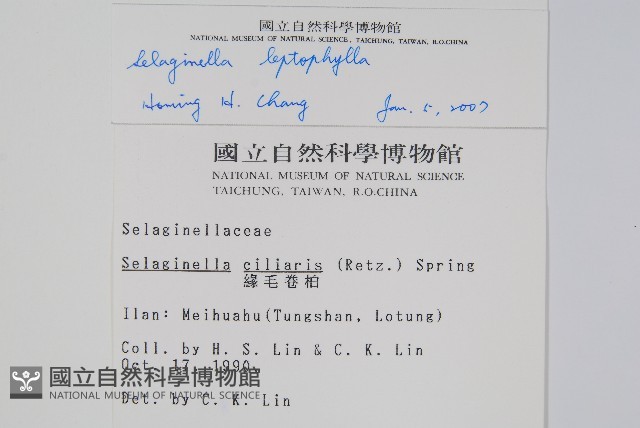 國立自然科學博物館
NATIONAL MUSEUM OF NATURAL SCIENCE, TAICHUNG, TAIWAN, R.O.CHINA
Selaginella leptophylla
Homing H. Chang Jan. 5, 2007
國立自然科學博物館
NATIONAL MUSEUM OF NATURAL SCIENCE
TAICHUNG, TAIWAN, R.O.CHINA
Selaginellaceae
Selaginella ciliaris (Retz.) Spring
緣毛卷柏
Ilan: Meihuahu(Tungshan, Lotung)
Coll. by H. S. Lin & C. K. Lin
Oct. 17, 1990.
國立自然科學博物館
NATIONAL MUSEUM OF NATURAL SCIENCE
Det. by C. K. Lin